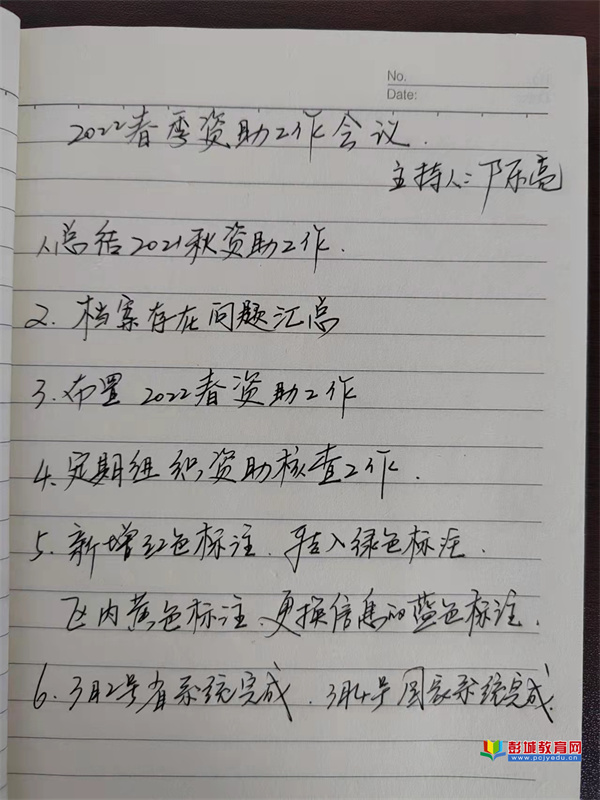 No.
Date:
2022春季资助工作会议.
主持人:卞乐亮
1、总结2021秋资助工作.
2. 档案存在问题汇总
3. 布置 2022春资助工作
4、定期组织资助核查工作.
5. 新增红色标注、转入绿色标注.
区内黄色标注、更换信息的蓝色标注.
6. 3月2号省系统完成. 3月4号国家系统完成.
彭城教育网
www.pcjyedu.cn